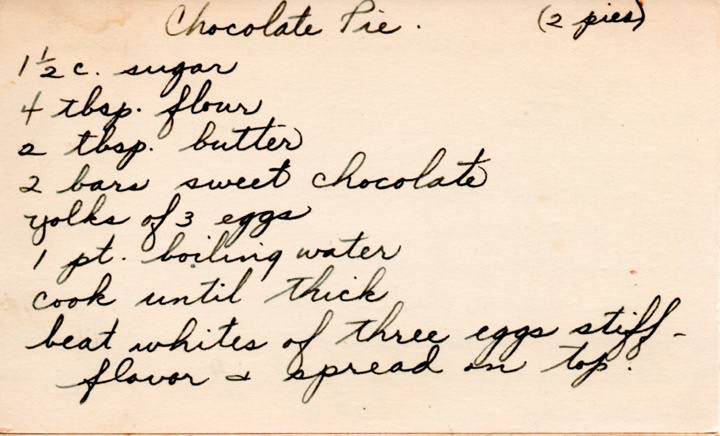 Chocolate Pie. (2 pies)
1 1/2 c. sugar
4 tbsp. flour
2 tbsp. butter
2 bars sweet chocolate
yolks of 3 eggs
1 pt. boiling water
cook until thick
beat whites of three eggs stiff -
flavor & spread on top.